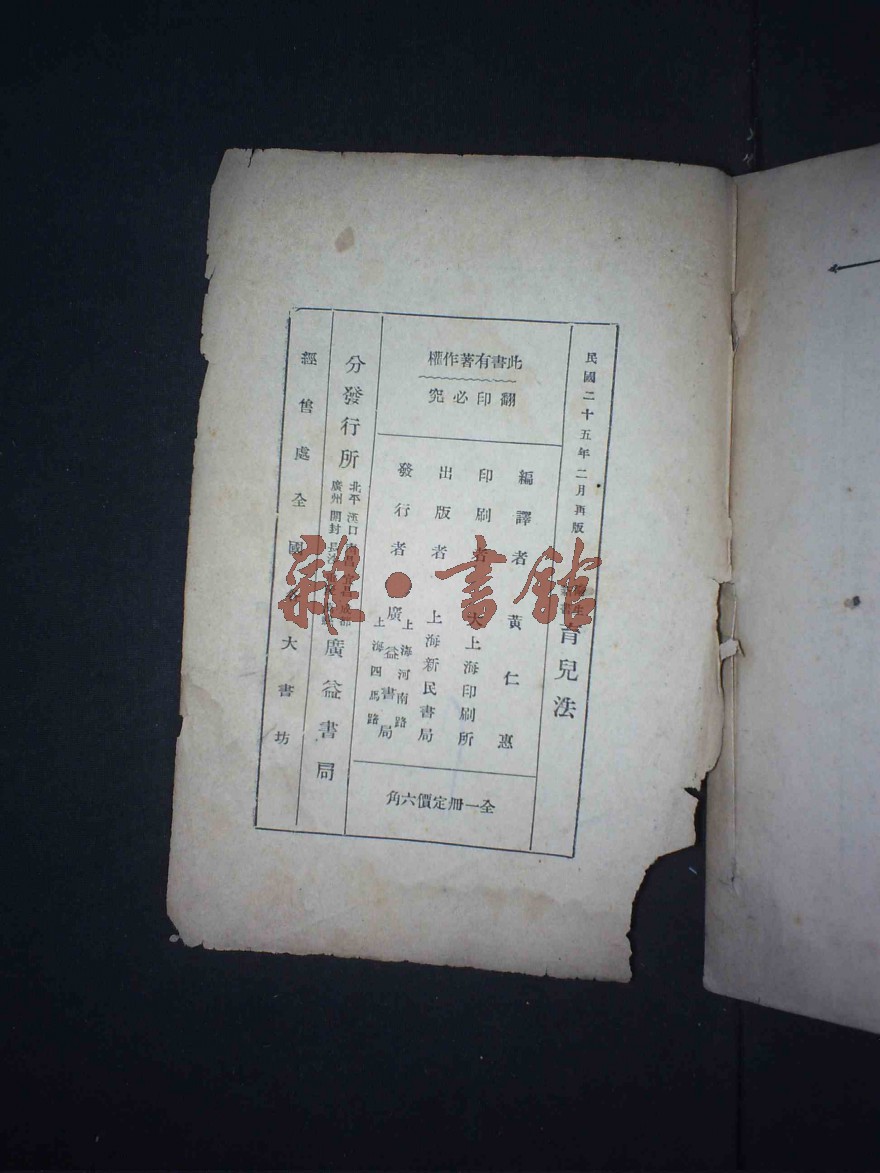 民國二十五年二月再版
育兒法
此書有著作權
翻印必究
編譯者 黃仁惠
印刷者 大上海印刷所
出版者 上海新民書局
發行者 廣益書局
上海河南路
上海四馬路
全一冊定價六角
分發行所
北平 漢口
廣州 開封 長沙
廣益書局
經售處全國各大書坊
雜·書館